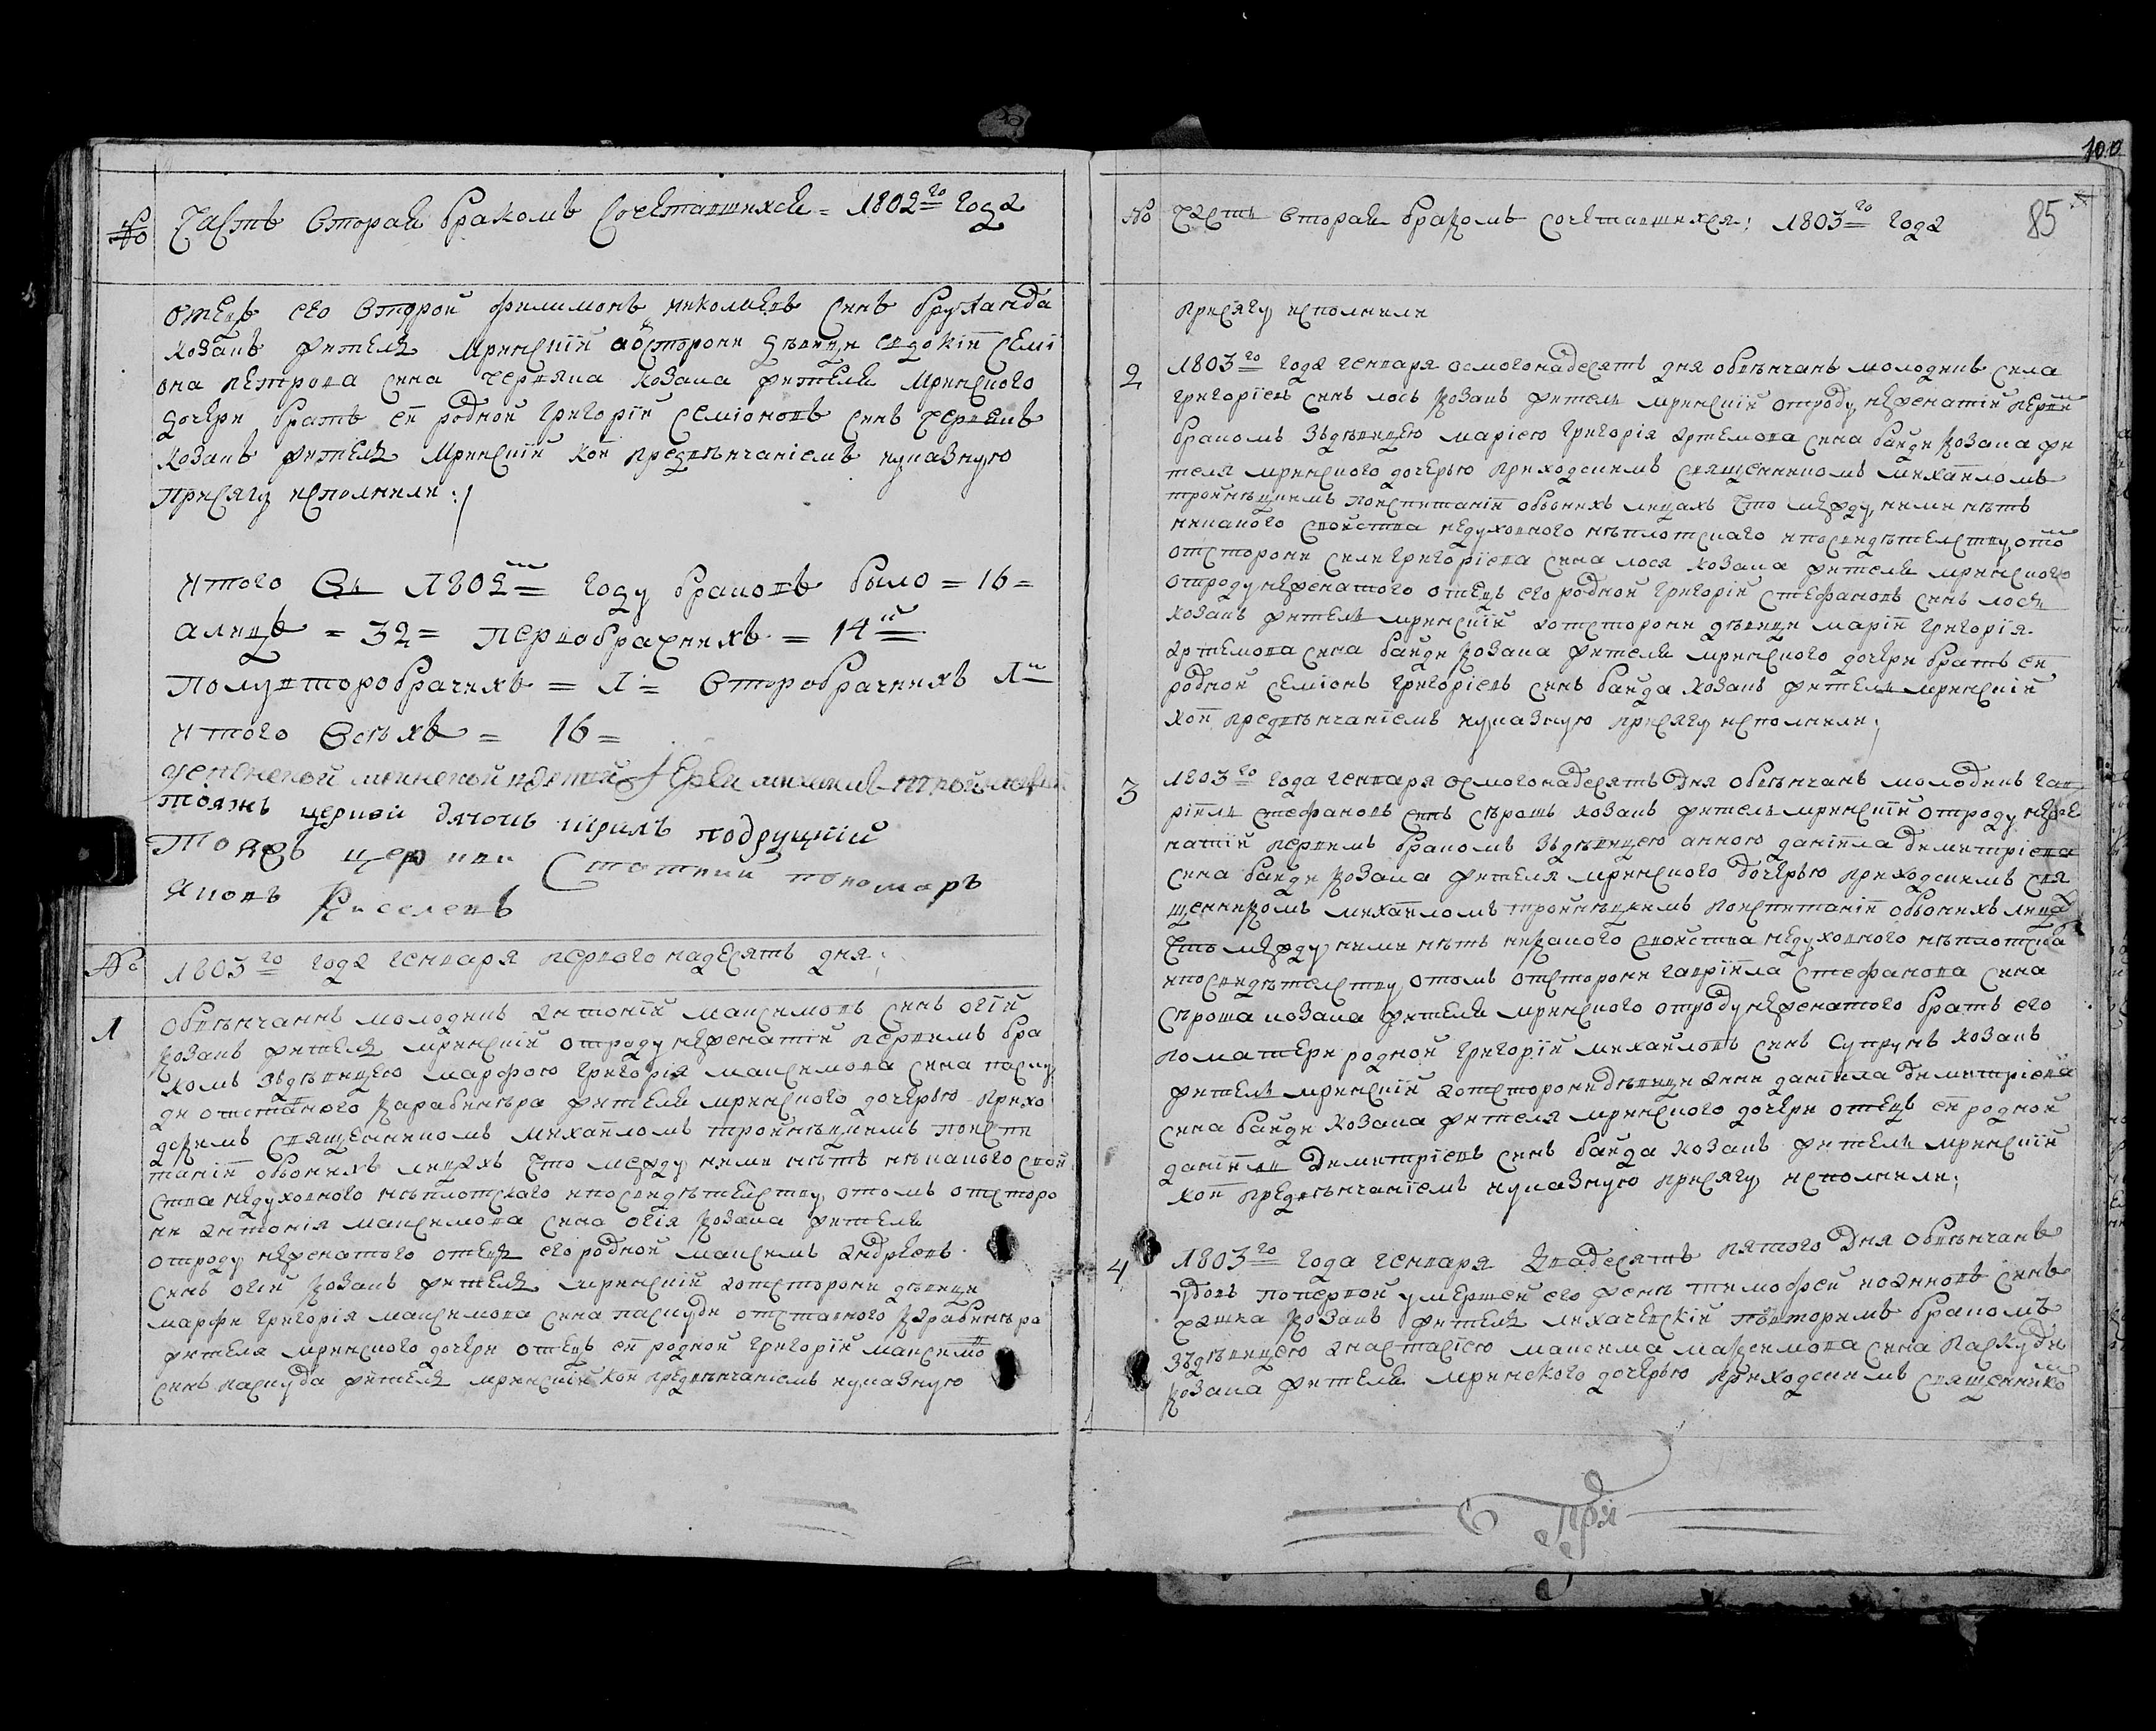 № Часть вторая бракомъ сочетавшихся = 1802го года
отецъ его второй филимонъ николаевъ синъ бруханда
козакъ жителъ мринский а состороны девици евдокіи семі
она петрова сина червяка козака жителя мринского
дочери братъ ей родной григорій семіоновъ синъ червякъ
козакъ жителъ мринскій кои предвѣнчаніемъ иуказную
присягу исполнили :/
Итого въ 1802м году браковъ было = 16 =
а лицъ = 32 = первобрачнихъ = 14й
полувторобрачнихъ = 1 = второбрачнихъ 1й
Итого всѣхъ = 16 =
Іерей михаилъ
тояжъ церкви дячокъ подруцкій
Тояжъ церкви пономаръ
Яковъ Киселевъ
№ 1803го года генваря первогонадесять дня;
1 Обвѣнчаннъ молодикъ антоній максимовъ синъ огій
козакъ жителъ мринскій отроду нежонатій первимъ бра
комъ здѣвицею марфою григорія максимова сина паску
ди отставного карабинѣра жителя мринского дочерью прихо
дскимъ священникомъ михаиломъ тройницкимъ поиспи
таніи обвоихъ лицахъ что между ними нѣтъ нѣкакого свой
ства недуховного нѣплотского ипосвидѣтелству отомъ отсторо
ни антонія максимова сина огія козака жителя
отроду нежонатого отецъ его родной максимъ андрѣевъ
синъ огій козакъ жителъ мринскій аотсторони дѣвици
марфи григорія максимова сина паскуди отставного карабинѣра
жителя мринского дочери отецъ ей родной григорій максимовъ
синъ паскуда жителъ мринскій кои предвѣнчаніемъ иуказную
100
№ Часть вторая бракомъ сочетавшихся; 1803го года 85
присягу исполнили
2 1803го года генваря осмогонадесять дня обвѣнчанъ молодикъ сила
григоріевъ синъ лось козакъ жителъ мринскій отроду нежонатій первимъ
бракомъ здѣвицею маріею григорія артемова сина байди козака жи
теля мринского дочерью приходскимъ священникомъ михаиломъ
тройницкимъ поиспитаніи обвоихъ лицахъ что между ними нѣтъ
никакого свойства недуховного нѣплотскаго ипосвидѣтелству отомъ
отсторони сили григоріева сина лося козака жителя мринского
отроду нежонатого отецъ его родной григорій стефановъ синъ лось
козакъ жителъ мринскій аотсторони дѣвици маріи григорія
артемова сина байди козака жителя мринского дочери братъ ей
родной семіонъ григоріевъ синъ байда козакъ жителъ мринскій
кои предвѣнчаніемъ иуказную присягу исполнили;
3 1803го года генваря осмогонадесять дня обвѣнчанъ молодикъ гав
ріилъ стефановъ синъ сѣрошъ козакъ жителъ мринскій отроду нежо
натій первимъ бракомъ здѣвицею анною даніила димитріева
сина байди козака жителя мринского дочерью приходскимъ свя
щенникомъ михаиломъ тройницкимъ поиспитаніи обвоихъ лицахъ
что между ними нѣтъ никакого свойства недуховного нѣплотска
ипосвидѣтелству отомъ отсторони гавріила стефанова сина
сѣроша козака жителя мринского отроду нежонатого братъ его
поматери родной григорій михайловъ синъ супрунъ козакъ
жителъ мринскій аотсторони дѣвици анни даніила димитріева
сина байди козака жителя мринского дочери отецъ ей родной
даніилъ димитріевъ синъ байда козакъ жителъ мринскій
кои предвѣнчаніемъ иуказную присягу исполнили;
4 1803го года генваря двадесять пятого дня обвѣнчанъ
удовъ попервой умершей его женѣ тимофей иоанновъ синъ
козакъ жителъ лихачевскій вторимъ бракомъ
здѣвицею анастасіею максима максимова сина паскуди
козака жителя мринского дочерью приходскимъ священнико
При